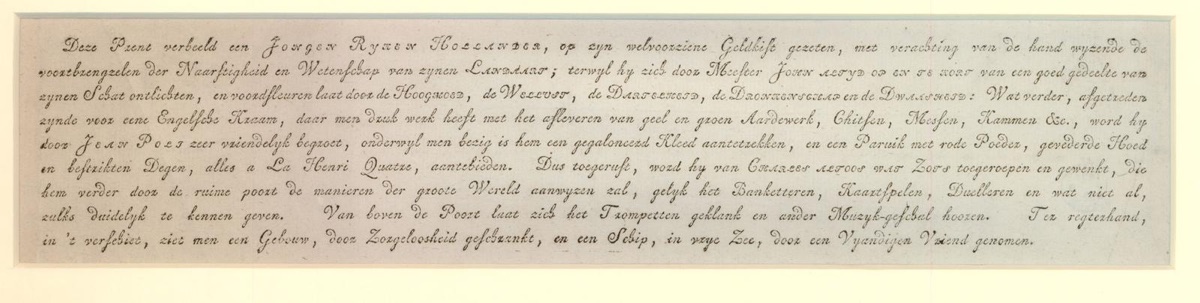 Deze Prent verbeeld een JONGEN RYKEN HOLLANDER, op zyn welvoorziene Geldkist gezeten, met verachting van de hand wyzende de
voortbrengzelen der Naarstigheid en Wetenschap van zynen LANDAART; terwyl hy zich door Mesfeer JOHN ALTYD OP EN TE KORT van een goed gedeelte van
zynen Schat ontlichten, en voordsleuren laat door de HOOGMOED, de WELLUST, de DARTELHEID, de DRONKENSCHAP en de DWAASHEID: Wat verder, afgetreden
zynde voor eene Engelsche Kraam, daar men druk werk heeft met het afleveren van geel en groen Aardewerk, Chitsen, Messen, Kammen &c., word hy
door JEAN POTS zeer vriendelyk begroet, onderwyl men bezig is hem een gegaloneerd Kleed aantetrekken, en een Paruik met rode Podder, gevederde Hoed
en bestrikten Degen, alles a La Henri Quatre, aantebidden. Dus toegerust, word hy van CHARLES ALTOOS WAT ZOTS toegeroepen en gewenkt, die
hem verder door de ruime poort de manieren der groote Wereld aanwyzen zal, gelyk het Banketteren, Kaartspelen, Duelleren en wat niet al,
zulks duidelyk te kennen geven. Van boven de Poort laat zich het Trompetten geklank en ander Muzyk-geschal hooren. Ter regterhand,
in 't verschiet, ziet men een Gebouw, door Zorgeloosheid geschrankt, en een Schip, in vrye Zee, door een Vyandigen Vriend genomen.